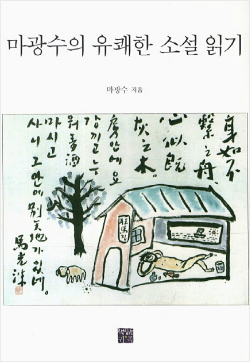 마광수의 유쾌한 소설 읽기
마광수 지음
身如不
繫之舟,
心似既
灰之木.
房안에 오
끼고 누
워
마시고
사니 그 안에 別天地가 있네.
馬光洙